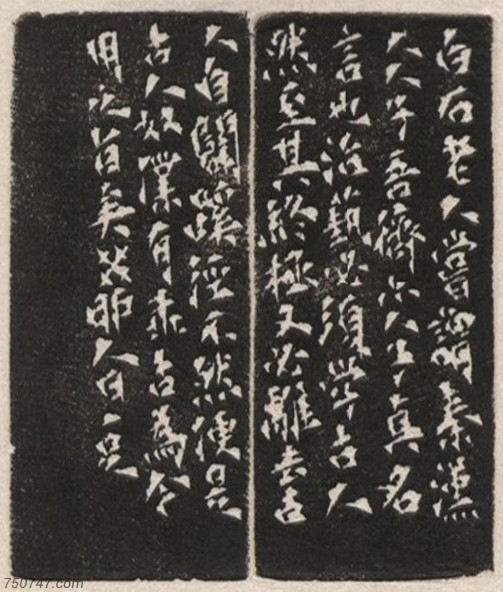 白石老人嘗謂秦漢
人人子吾儕亦人子真名
言也治藝必須學古人
然至其終極又必離去古
人自闢蹊徑不然便是
古人奴隸有乖古為今
用之旨矣癸卯人日
750747.com